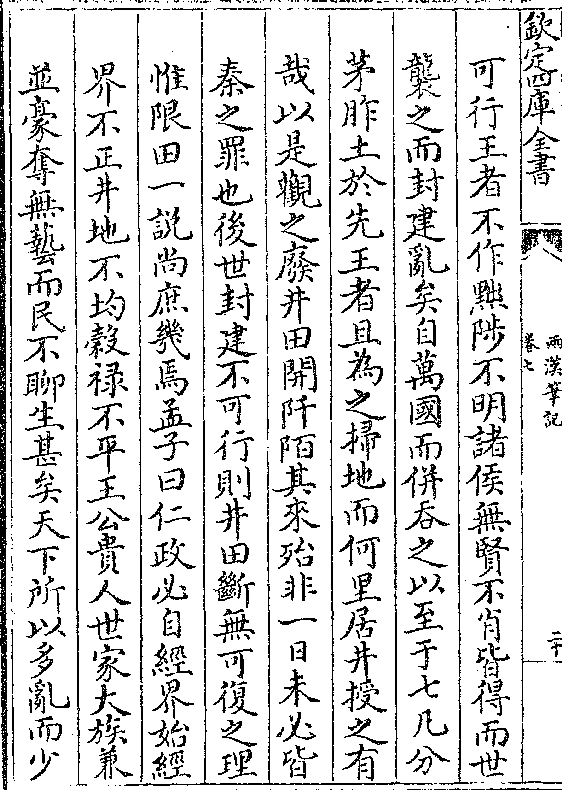 欽定四庫全書
兩漢筆記
卷七
二十
可行王者不作黜陟不明諸侯無賢不肖皆得而世
襲之而封建亂矣自萬國而併吞之以至于七凡分
茅胙土於先王者且為之掃地而何里居井授之有
哉以是觀之廢井田開阡陌其來殆非一日未必皆
秦之罪也後世封建不可行則井田斷無可復之理
惟限田一説尚庶幾焉孟子曰仁政必自經界始經
界不正井地不均穀禄不平王公貴人世家大族兼
並豪奪無藝而民不聊生甚矣天下所以多亂而少